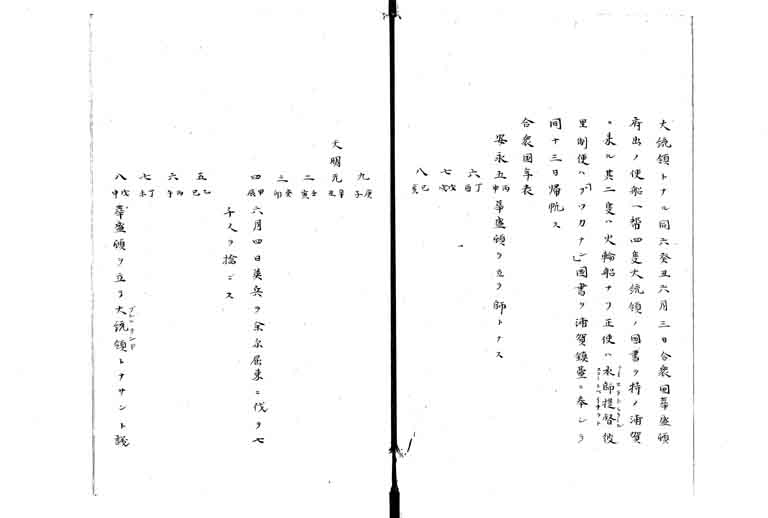 大統領トナル同六癸丑六月三日合衆国華盛頓
府出ノ使船一幇四隻大統領ノ国書ヲ持ノ浦賀
ニ来ル其二隻ハ火輪船ナリ正使ハ水師提督彼
里副使ハ国書ヲ浦賀鎮臺ニ奉シヲ
同十三日帰帆ス
合衆国年表
安永五丙申華盛頓ヲ立ヲ師トナス
六丁酉
七戊戌
八己亥
九庚子
天明元辛丑
二壬寅
三癸卯
四甲辰六月四日英兵ヲ東ニ伐ヲ七
千人ヲ擒ニス
五乙巳
六丙午
七丁未
八戊申華盛頓ヲ立ヲ大統領トナサント議